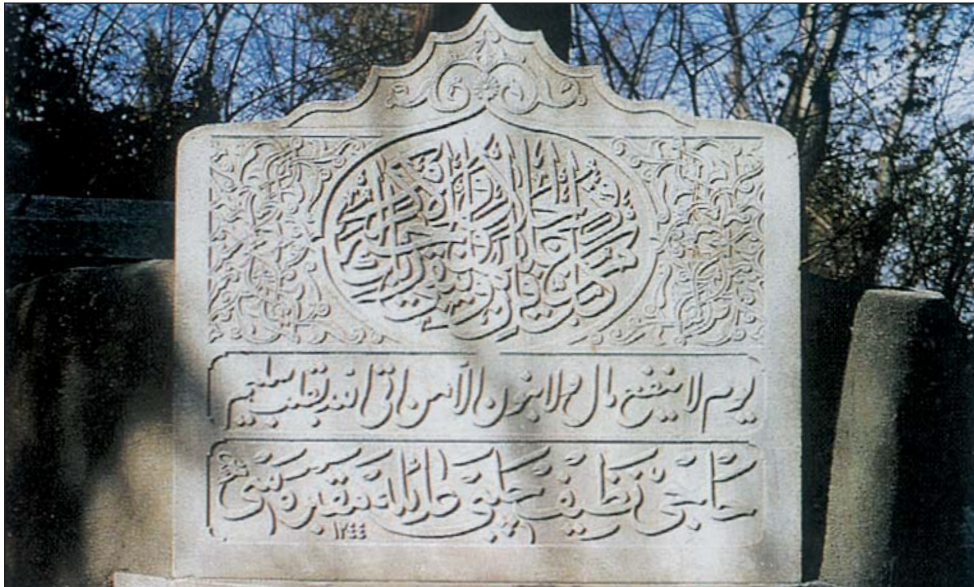 كل من عليها فان ويبقى وجه ربك ذو الجلال والاكرام
يوم لا ينفع مال ولا بنون الا من اتى الله بقلب سليم
حاجى نظيف چلبى عائله مقبره سى